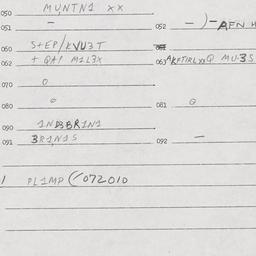 050 MUNTN1 XX
051 — 052 — ) — AFN H
060 S+EP/KVU3T
062 + QAP M1L3X 063 AKFTIRLXXQ MU3S
070 O
080 O 081 O
090 1N3BR1N1
091 3R1N1S 092 —
1 PL1MP (/072010